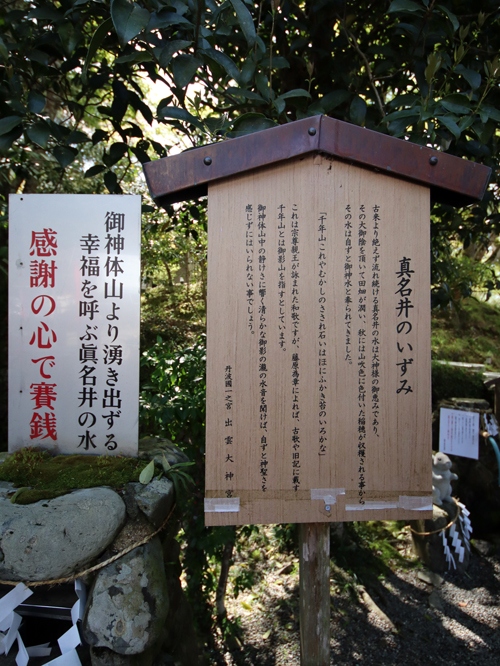 真名井のいずみ
古来より絶えず流れ続ける真名井の水は大神様の御恵みであり、
その大御陰を頂いて田畑が潤い、秋には山吹色に色付いた稲穂が収穫される事から
その水は自ずと御神水と奉られてきました。
「千年山これやむかしのさざれ石いはほにふかき苔のいろかな」
これは宗尊親王が詠まれた和歌ですが、藤原為章によれば、古歌や旧記に載す
千年山とは御影山を指すとしています。
御神体山中の静けさに響く清らかな御影の瀧の水音を聞けば、自ずと神聖さを
感じずにはいられない事でしょう。
丹波國一之宮 出雲大神宮
御神体山より湧き出ずる
幸福を呼ぶ眞名井の水
感謝の心で賽銭